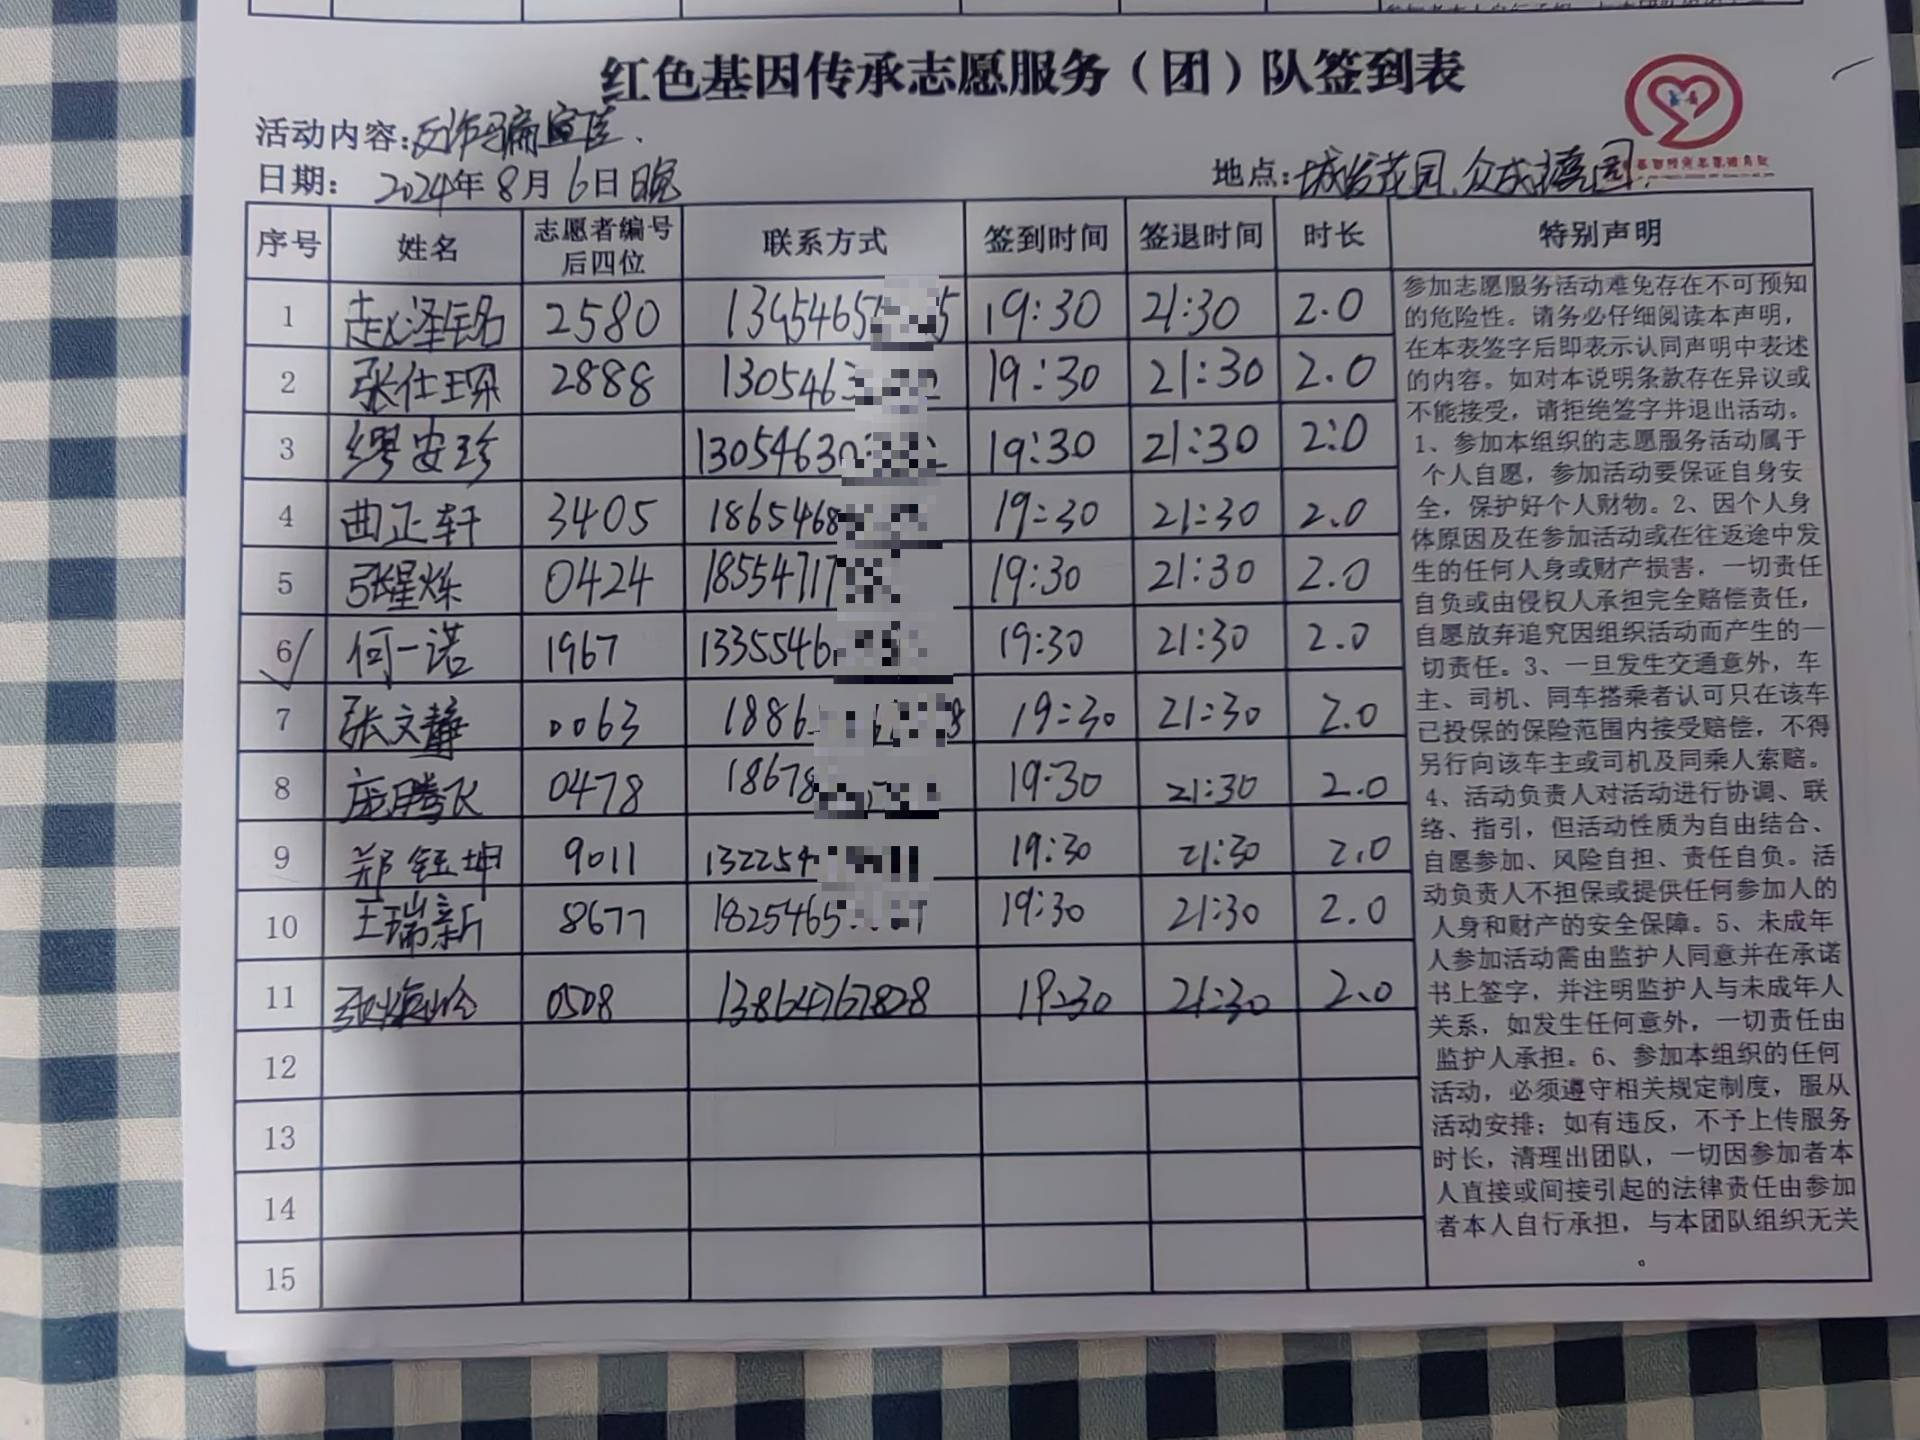 红色基因传承志愿服务（团）队签到表
活动内容:反诈骗宣传.
日期: 2024年8月6日晚
地点:花园,众成
序号 姓名 志愿者编号后四位 联系方式 签到时间 签退时间 时长 特别声明
1 赵泽铭 2580 19:30 21:30 2.0
2 张仕琛 2888 1305463 19:30 21:30 2.0
3 缪安珍 13054630 19:30 21:30 2:0
4 曲正轩 3405 1865468 19:30 21:30 2.0
5 张星烁 0424 18554717 19:30 21:30 2.0
6 何一诺 1967 1335546 19:30 21:30 2.0
7 张文静 0063 1886 8 19:30 21:30 2.0
8 庞腾飞 0478 18678 19:30 21:30 2.0
9 郑钰坤 9011 132254 19:30 21:30 2.0
10 王瑞新 8677 1825465 19:30 21:30 2.0
11 0508 13864767828 19:30 21:30 2.0
12
13
14
15
参加志愿服务活动难免存在不可预知
的危险性。请务必仔细阅读本声明，
在本表签字后即表示认同声明中表述
的内容。如对本说明条款存在异议或
不能接受，请拒绝签字并退出活动。
1、参加本组织的志愿服务活动属于
个人自愿，参加活动要保证自身安
全，保护好个人财物。2、因个人身
体原因及在参加活动或在往返途中发
生的任何人身或财产损害，一切责任
自负或由侵权人承担完全赔偿责任，
自愿放弃追究因组织活动而产生的一
切责任。3、一旦发生交通意外，车
主、司机、同车搭乘者认可只在该车
已投保的保险范围内接受赔偿，不得
另行向该车主或司机及同乘人索赔。
4、活动负责人对活动进行协调、联
络、指引，但活动性质为自由结合、
自愿参加、风险自担、责任自负。活
动负责人不担保或提供任何参加人的
人身和财产的安全保障。5、未成年
人参加活动需由监护人同意并在承诺
书上签字，并注明监护人与未成年人
关系，如发生任何意外，一切责任由
监护人承担。6、参加本组织的任何
活动，必须遵守相关规定制度，服从
活动安排；如有违反，不予上传服务
时长，清理出团队，一切因参加者本
人直接或间接引起的法律责任由参加
者本人自行承担，与本团队组织无关
。